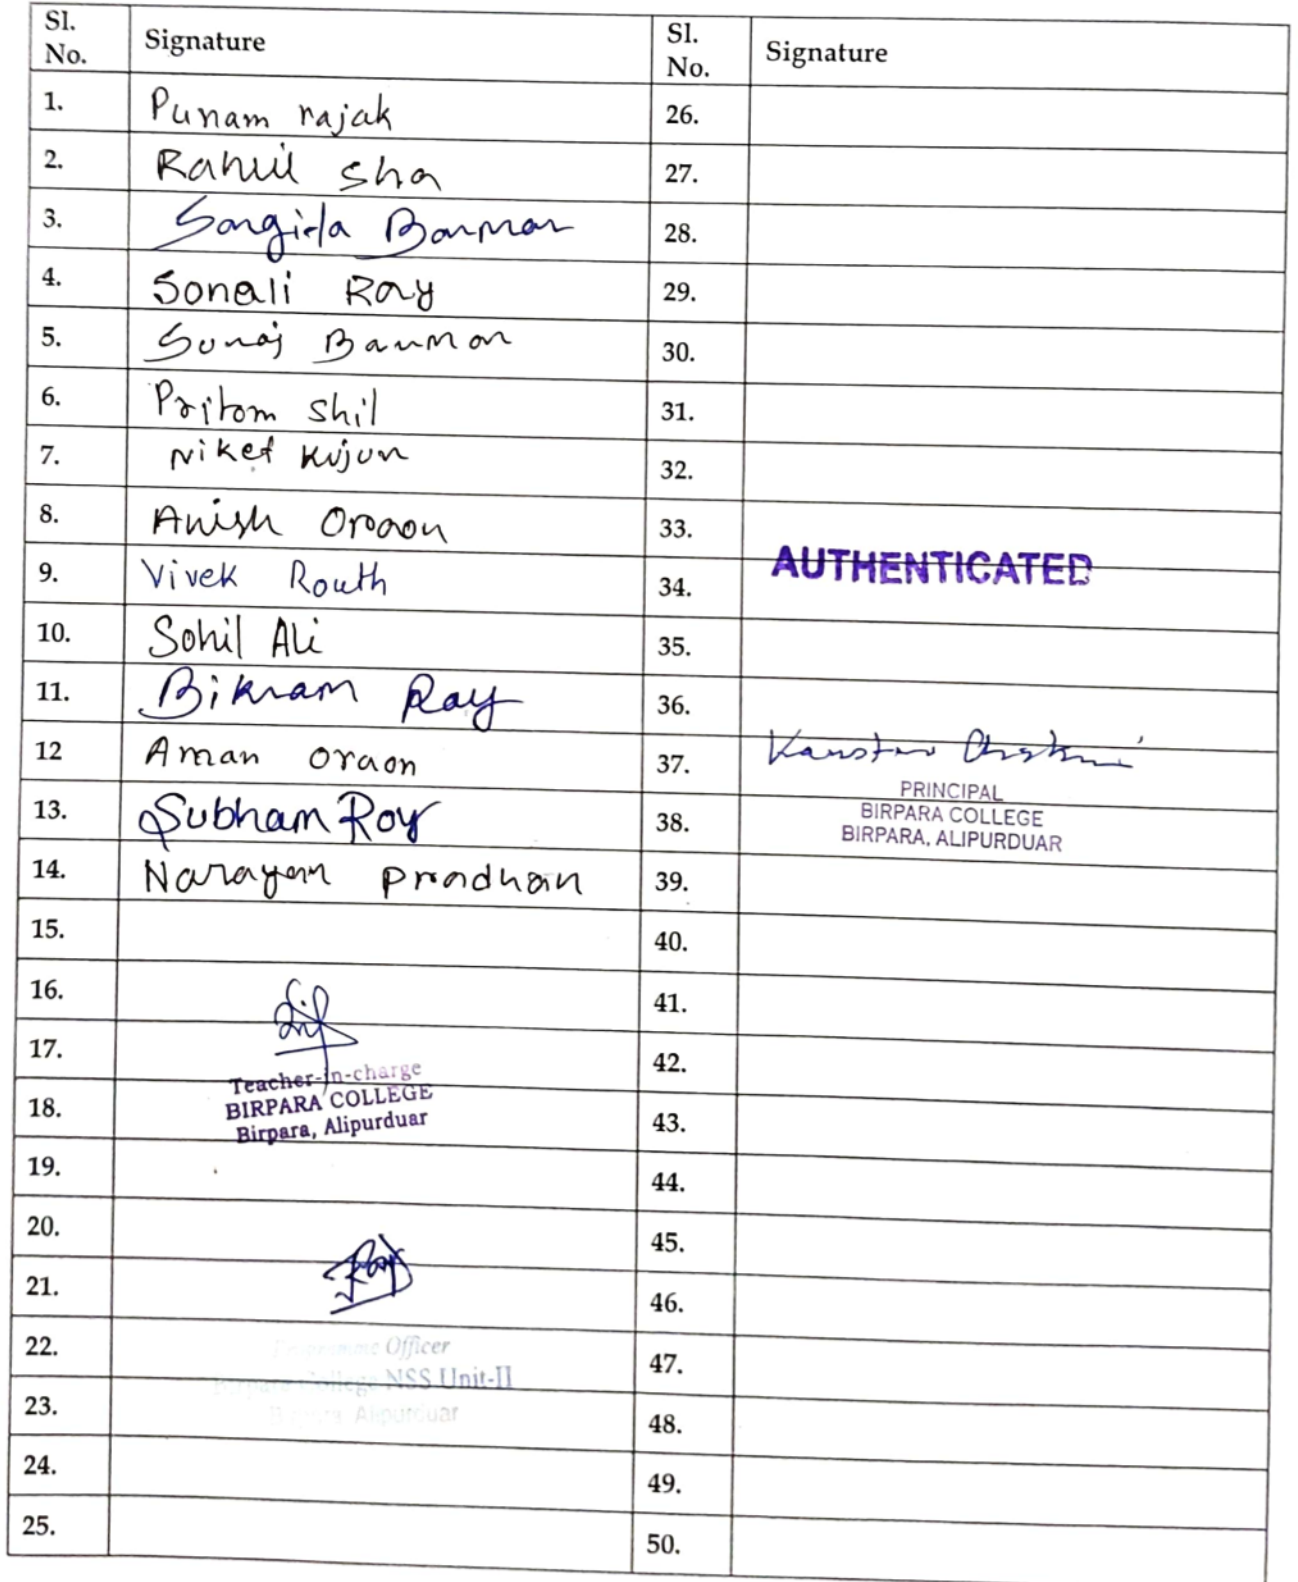 Sl. No. Signature Sl. No. Signature
1. Punam rajak 26.
2. Rahul Sha 27.
3. Sangita Barman 28.
4. Sonali Ray 29.
5. Suraj Barman 30.
6. Pritom Shil 31.
7. Niket Kujur 32.
8. Anish Oraon 33.
9. Vivek Routh 34. AUTHENTICATED
10. Sohil Ali 35.
11. Bikram Ray 36.
12 Aman Oraon 37.
PRINCIPAL
13. Subham Roy 38. BIRPARA COLLEGE
BIRPARA, ALIPURDUAR
14. Narayan Pradhan 39.
15. 40.
16. 41.
17. 42.
Teacher-in-charge
18. BIRPARA COLLEGE 43.
Birpara, Alipurduar
19. 44.
20. 45.
21. 46.
22. Programme Officer 47.
Birpara College NSS Unit-II
23. Birpara, Alipurduar 48.
24. 49.
25. 50.